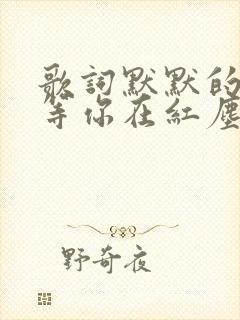 歌詞默默的
等你在紅塵
野奇夜